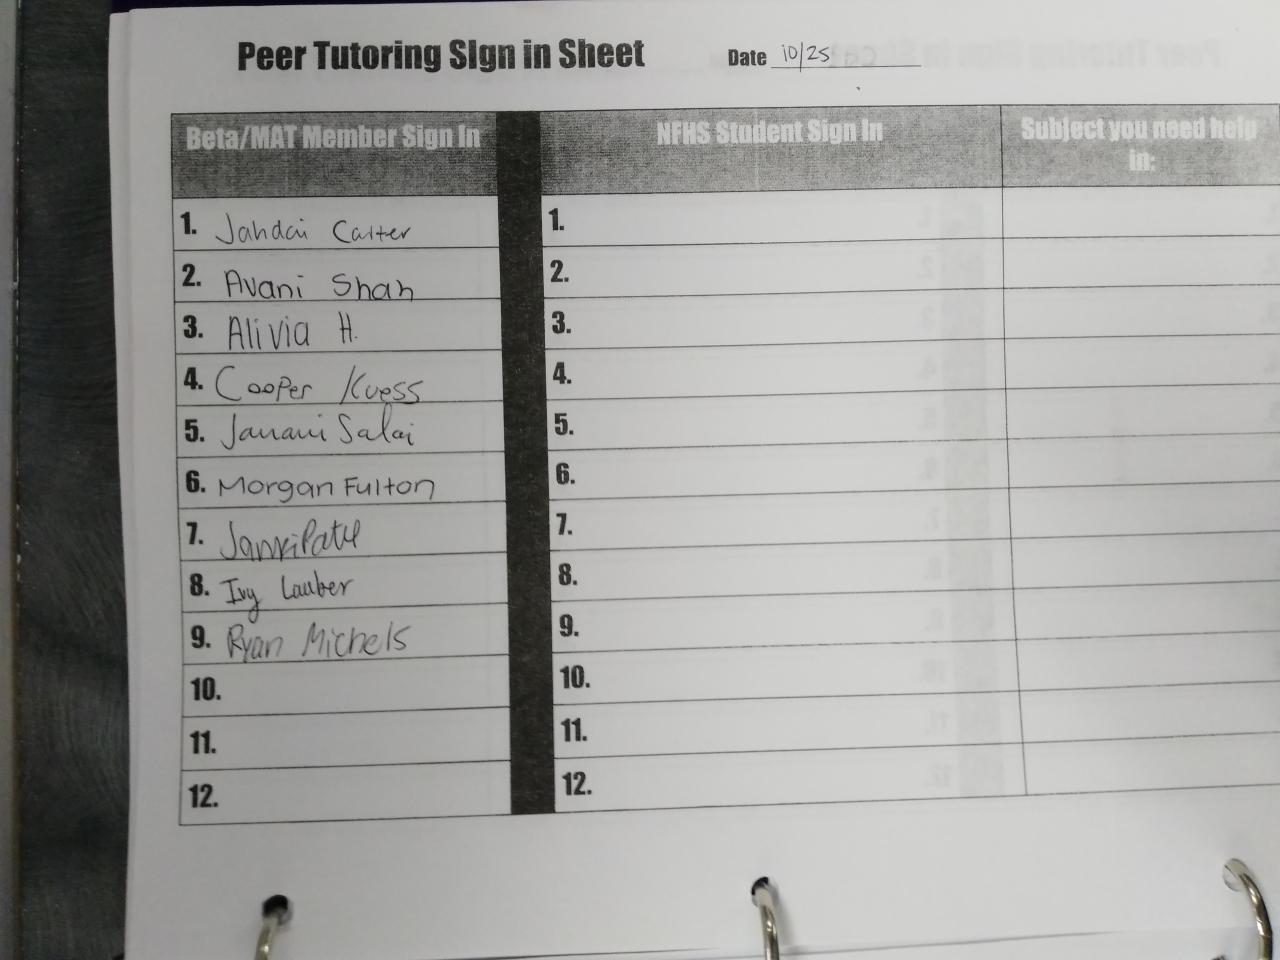 Peer Tutoring SIgn in Sheet Date 10/25
Beta/MAT Member Sign In NFHS Student Sign In Subject you need help
in:
1. Jahdai Carter 1.
2. Avani Shah 2.
3. Alivia H. 3.
4. Cooper Kuess 4.
5. Janani Salai 5.
6. Morgan Fulton 6.
7. Janki Patel 7.
8. Ivy Lauber 8.
9. Ryan Michels 9.
10. 10.
11. 11.
12. 12.